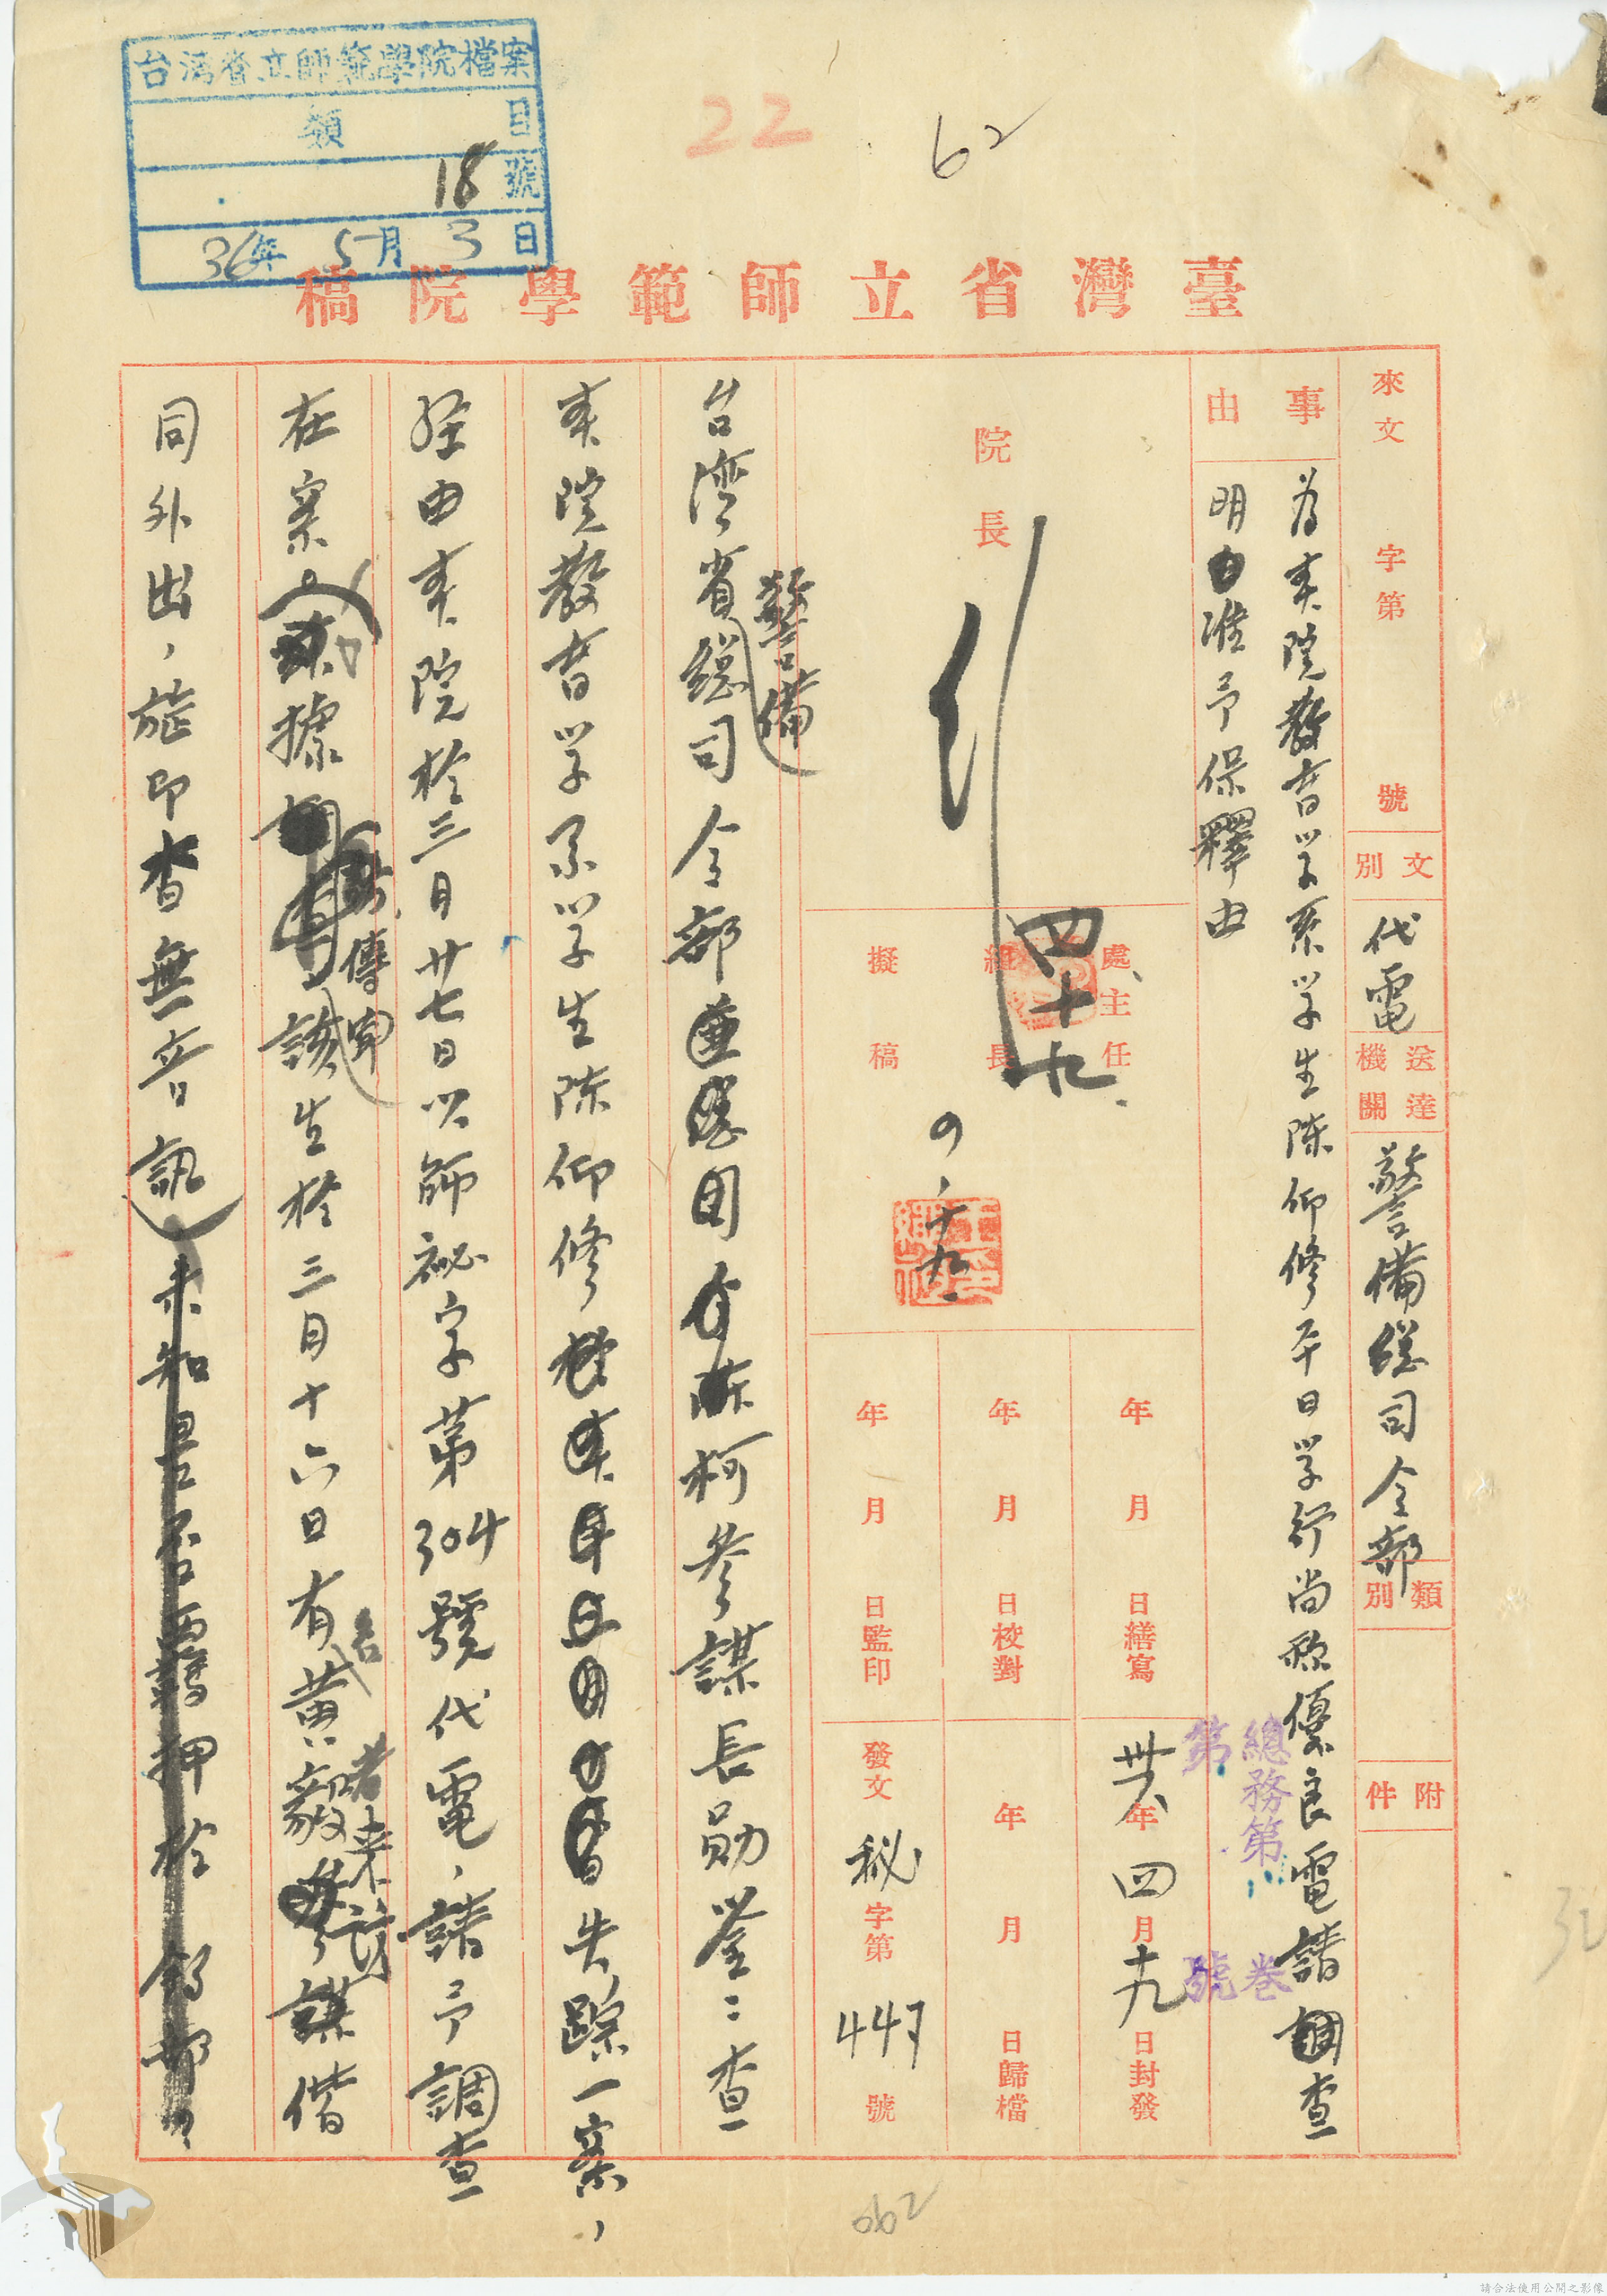 台灣省立師範學院檔案
類 目
18 號
36年 5月 3日
22
62
臺灣省立師範學院稿
來文 字第 號
文別 代電
送達機關 警備總司令部
類別
附件
事由 為本院教育学系学生陳仰修平日学行尚称優良電請調查
明白准予保釋由
院長
處主任
組長
擬稿
四十九
四、十九
年 月 日繕寫
年 月 日校對
年 月 日監印
卅六年四月十九日封發
年 月 日歸檔
發文 秘字第 447 號
總務第 卷
第 號
台湾省警備總司令部 柯參謀長勛鑒：查
本院教育学系学生陈仰修 失踪一案，
經由本院於三月廿七日以師祕字第304號代電，請予調查
在案。據 傳聞該生於三月十六日有名黄毅 者来訪 偕
同外出，旋即杳無音訊
未知是否羈押於鈞部
062
請合法使用公開之影像